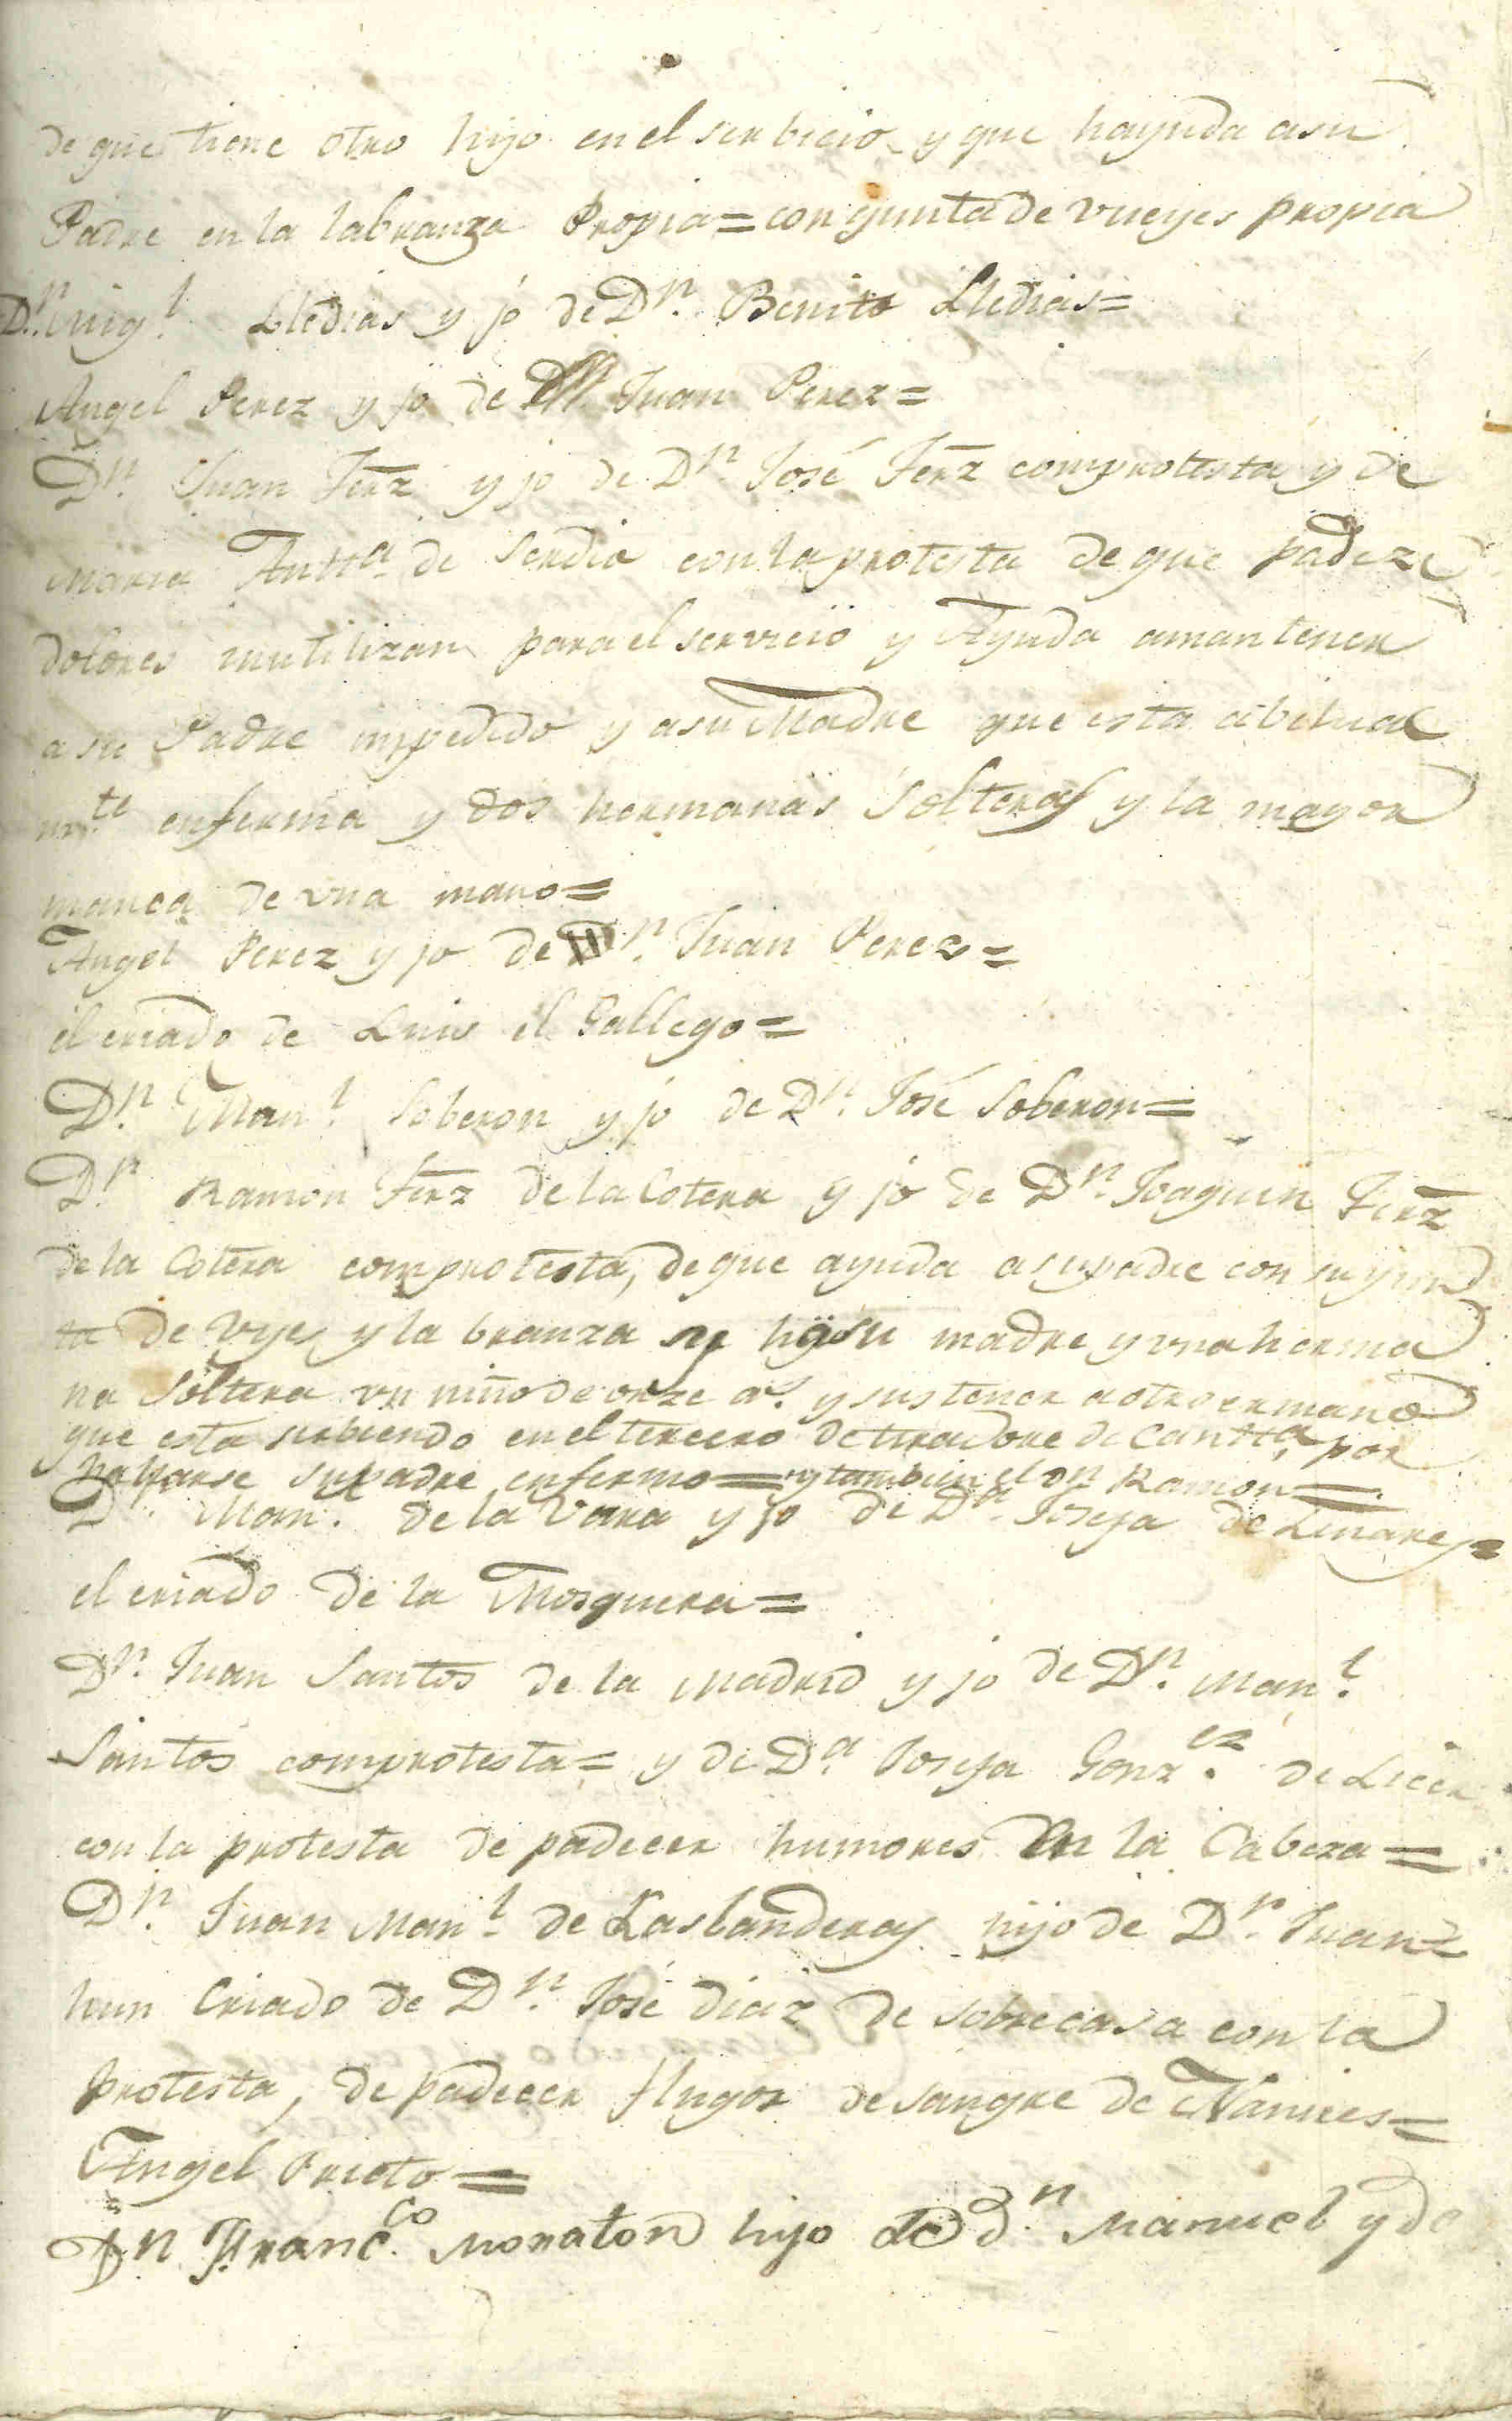 de que tiene otro hijo en el serbicio y que hayuda asu
Padre en la labranza Propia = con yunta de vueyes propia
Dn. Migl. Lledias y jo de Dn. Benito Lledias =
Angel Perez y jo de Juan Perez =
Dn. Juan Ferz y jo de Dn. José Ferz comprotesta y de
Maria Antta. de Serdio con la protesta de que padeze
dolores inutilizan para el servicio y Ayuda amantener
a su Padre impedido y asu Madre que esta abitual
mte. enferma y dos hermanas Solteras y la mayor
manca de vna mano =
Angel Perez y jo de Dn. Juan Perez =
el criado de Luis el Gallego =
Dn. Manl. Soberon y jo de Dn. José Soberon =
Dn. Ramon Ferz de la Cotera y jo de Dn. Joaquin Ferz
de la Cotera comprotesta, de que ayuda a supadre con su yun
ta de vyes y la branza su madre y vna herma
na Soltera vn niño de onze as. y sustener a otro ermano
que esta serbiendo en el tercero de tiradore de Cantta. por
hallarse supadre enfermo = y tambien el Dn Ramon =
Dn. Manl. de la Vara y jo de Da. Josefa de Linares =
el criado de la Mosquera =
Dn. Juan Santos de la Madrid y jo de Dn. Manl.
Santos comprotesta = y de Da. Josefa Gonzez. de
con la protesta de padecer humores en la Cabeza =
Dn. Juan Manl. de Laslanderas hijo de Dn. Juan =
hun Criado de Dn. José diaz de sobrecasa con la
protesta, de padecer flugos de sangre de Narices =
Angel Prieto =
Dn Francco. Moraton hijo de dn. Manuel y de